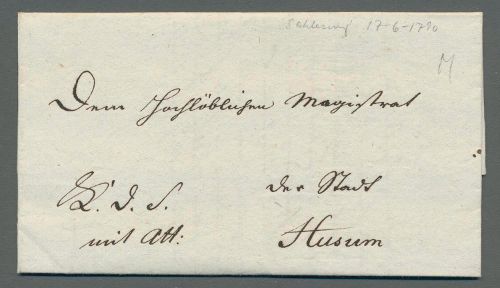 Schleswig 17-6-1790
M
Dem Hochlöblichen Magistrat
K. d. S. der Stadt
mit Att: Husum